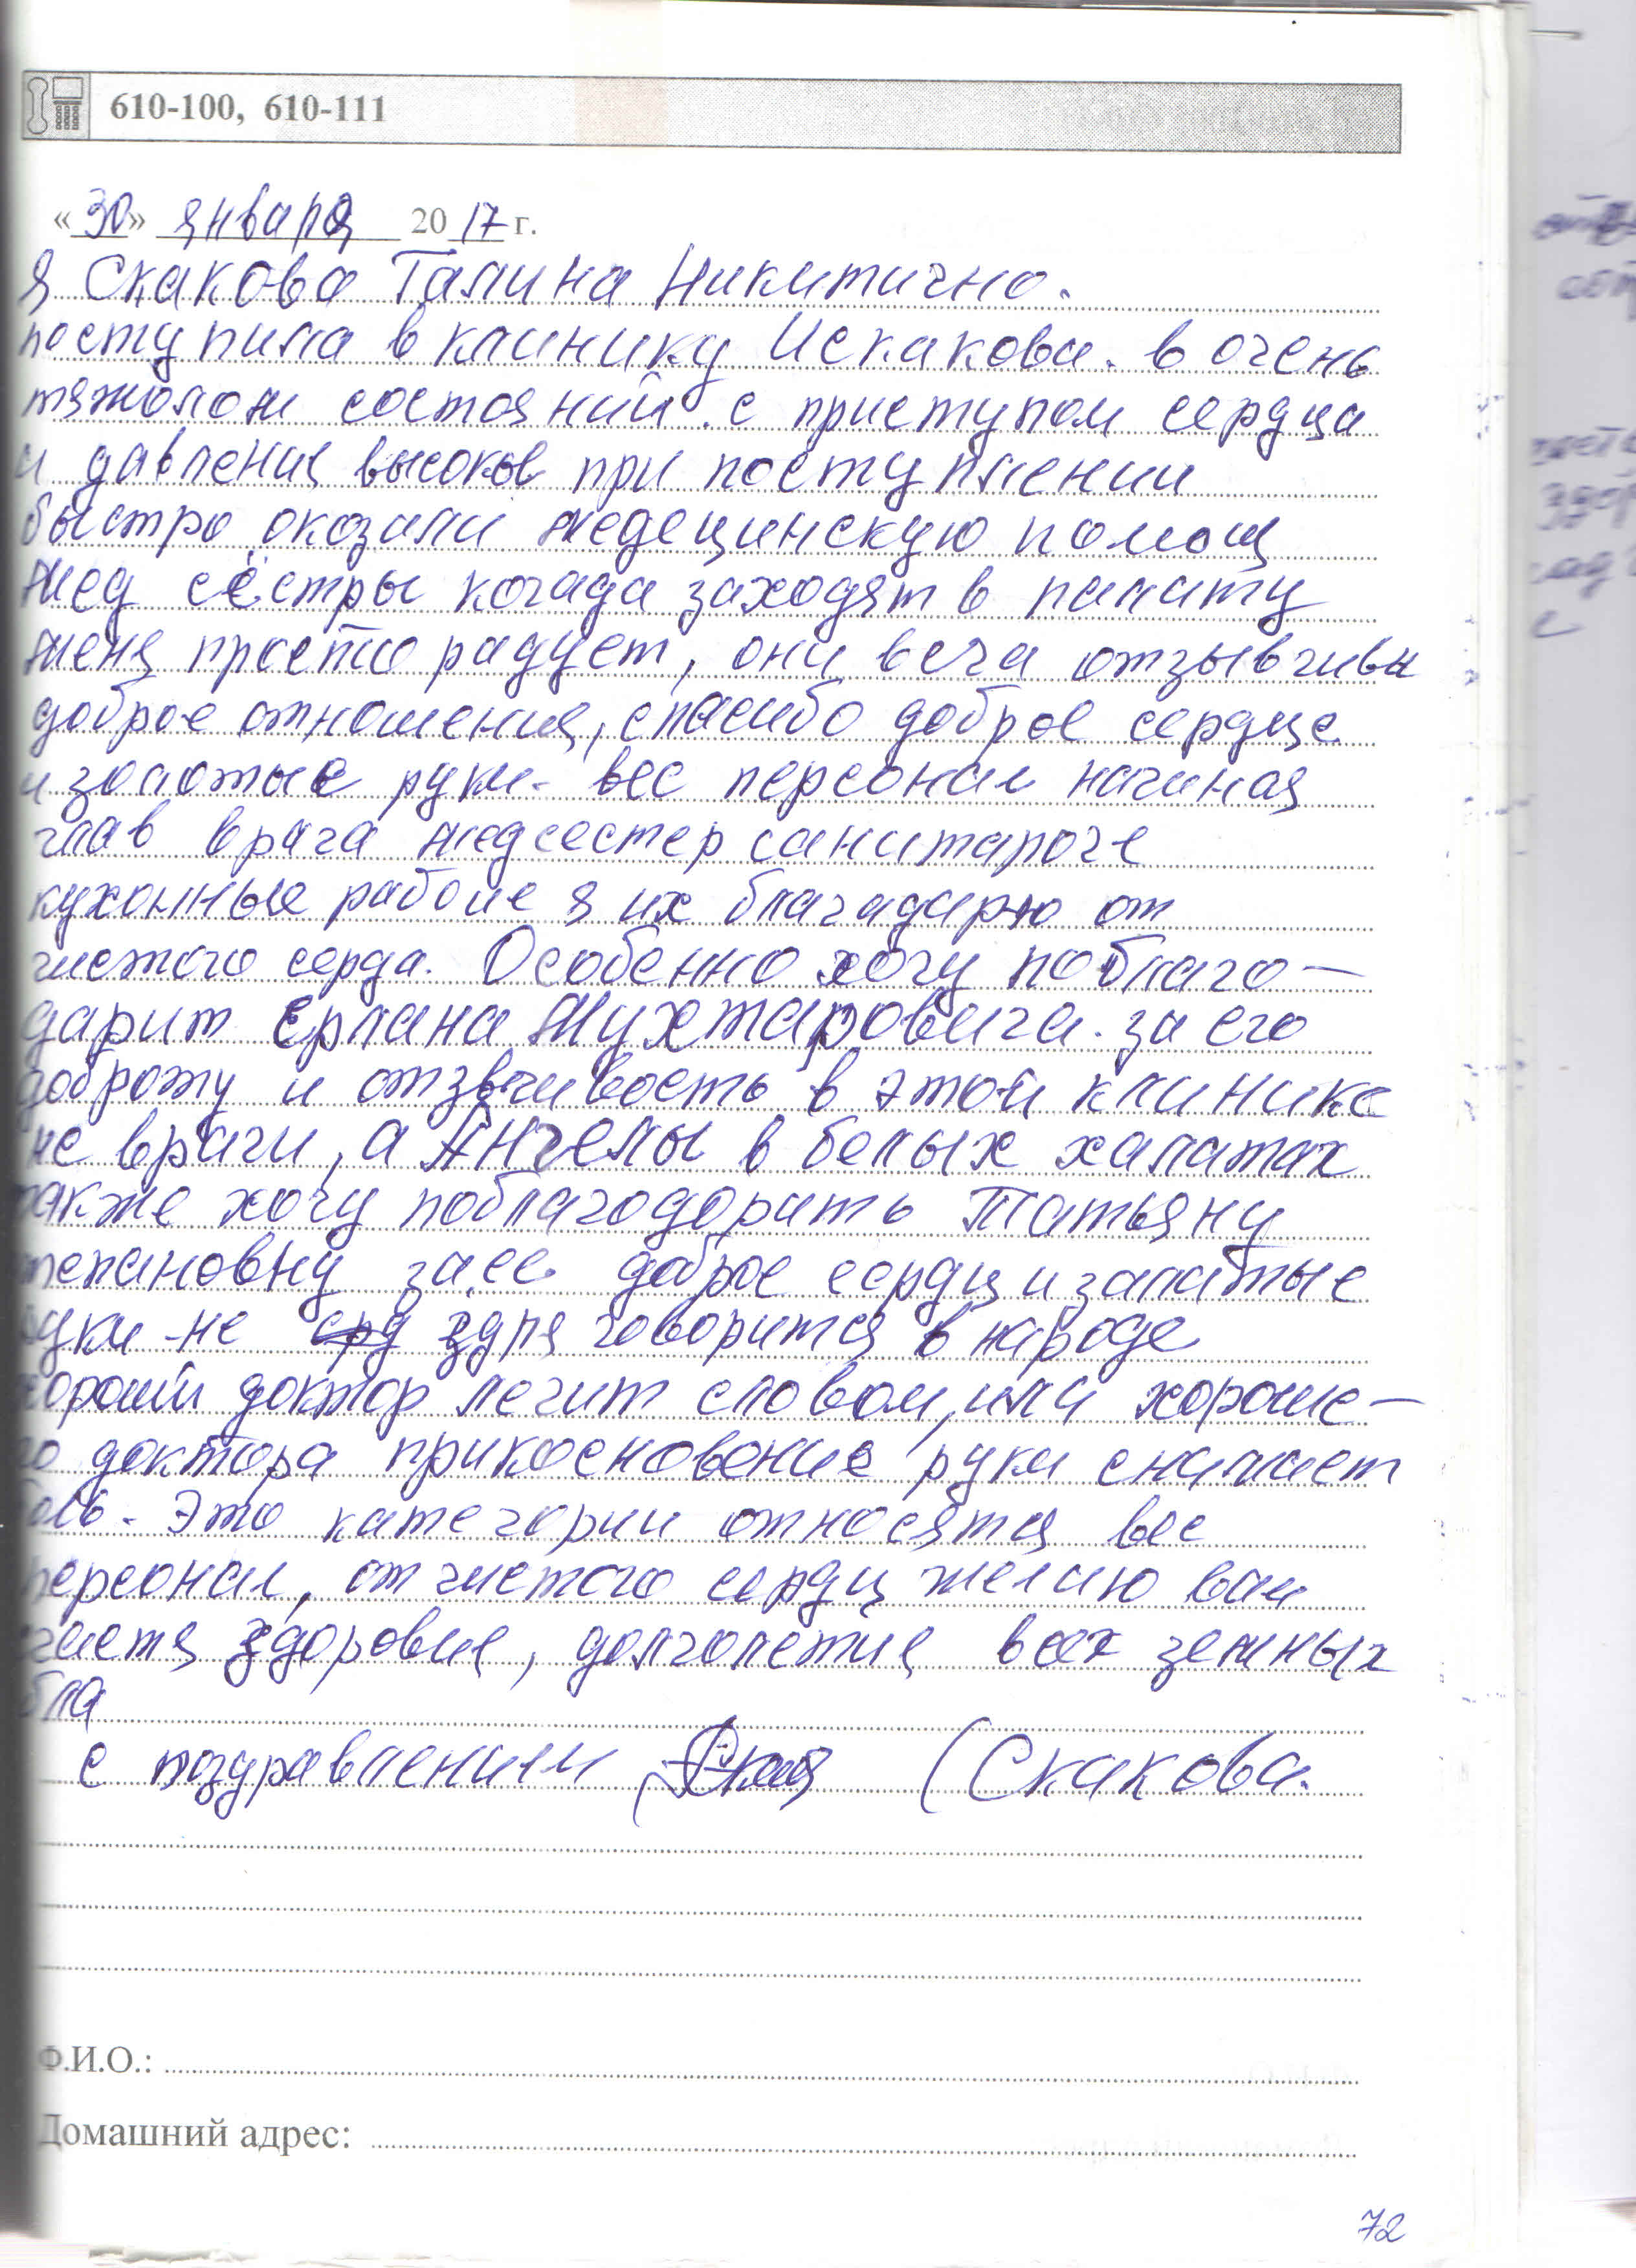 610-100, 610-111
«30» января 2017 г.
Я Скакова Галина Никитично.
поступила в клинику Искакова. в очень
тяжолом состояний. с приступом сердца
и давления высоков при поступлении
быстро оказали медецинскую помощ
мед сёстры когада заходят в палату
меня просто радует, они всга отзывчивы
доброе отношения, спасибо доброе сердце
и золотые руки. вес персонал начиная
глав врача медсестер санитароче
кухонные рабоие я их благадарю от
чистого серда. Особенно хочу поблаго-
дарит Ерлана Мухтаровича. за его
доброту и отзвчивость в этой клинике
не врачи, а Ангелы в белых халатах
также хочу поблагодорить Татьяну
тепановну за ее доброе сердц и залатые
руки - не здря говорится в народе
хороший доктор лечит словом, или хороше-
го доктора прикосновение руки снимает
боль. Это категории относятся вес
персонал, от чистого сердц желаю вам
счастя здоровие, долголетия всех земных
бла
с поздравлением (Скакова.
Ф.И.О.:
Домашний адрес:
72